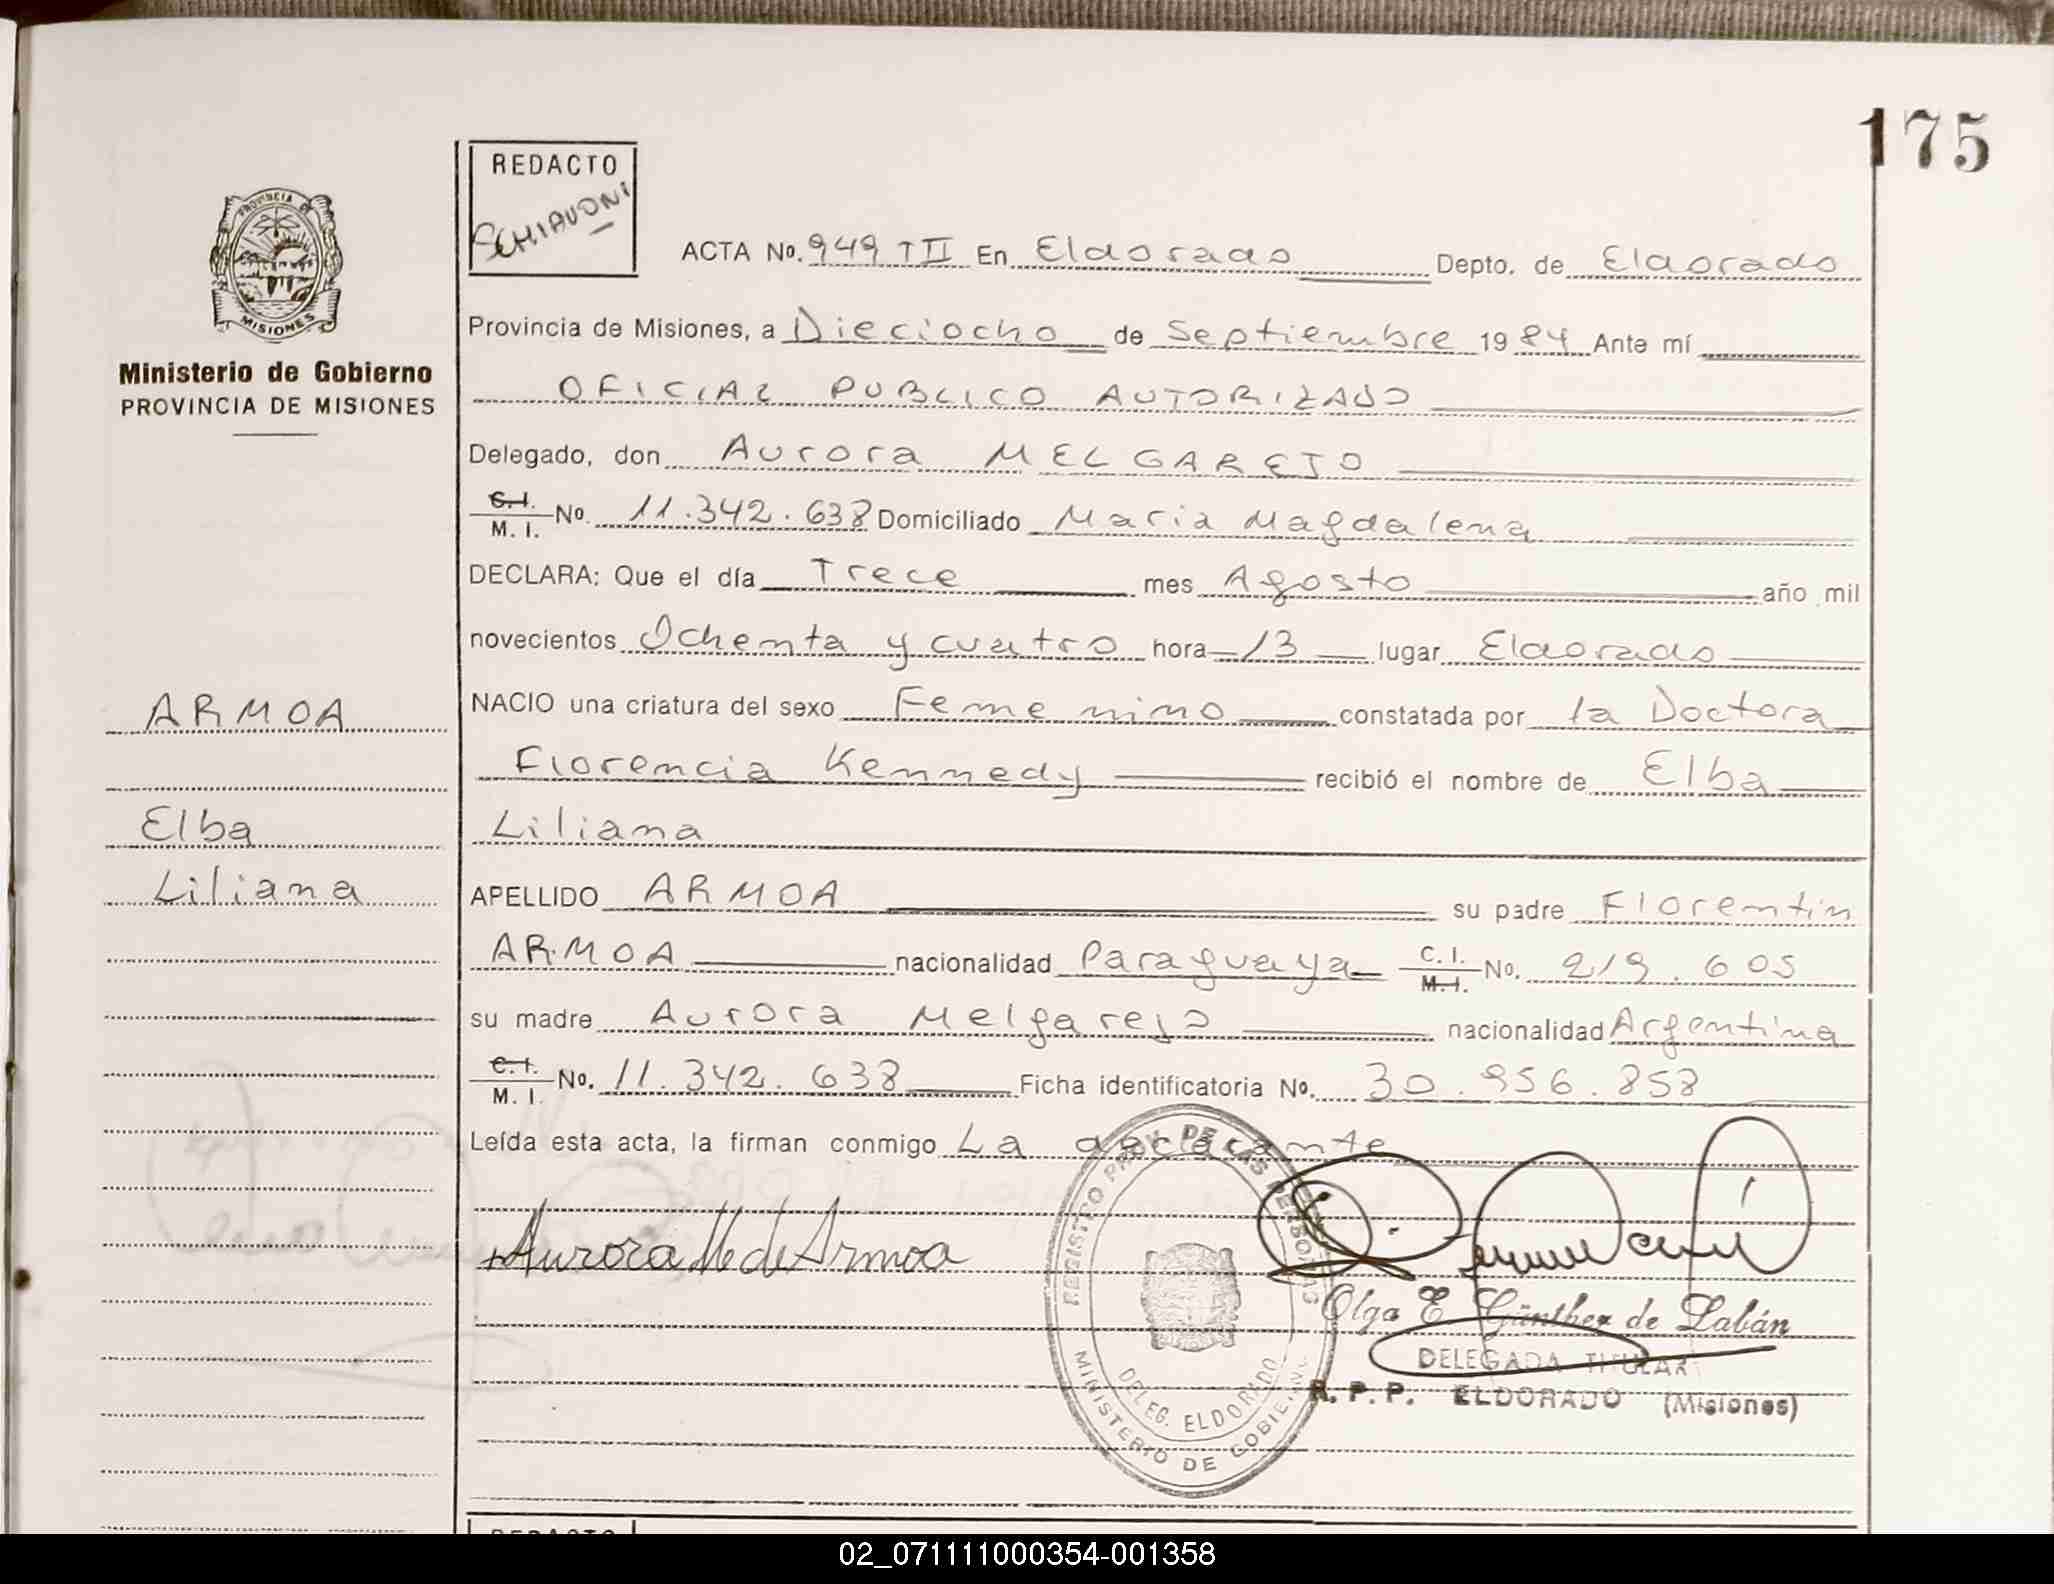 175
REDACTO
SCHIAVONI
PROVINCIA DE
MISIONES
Ministerio de Gobierno
PROVINCIA DE MISIONES
ACTA No. 949 TII En Eldorado Depto. de Eldorado
Provincia de Misiones, a Dieciocho de Septiembre 1984 Ante mí
OFICIAL PUBLICO AUTORIZADO
Delegado, don Aurora MELGAREJO
C.I. M. I. No. 11.342.638 Domiciliado Maria Magdalena
DECLARA: Que el día Trece mes Agosto año mil
novecientos Ochenta y cuatro hora 13 lugar Eldorado
NACIO una criatura del sexo Femenino constatada por la Doctora
Florencia Kennedy recibió el nombre de Elba
Liliana
ARMOA
Elba
Liliana
APELLIDO ARMOA su padre Florentin
ARMOA nacionalidad Paraguaya C. I. M.I. No. 219.605
su madre Aurora Melgarejo nacionalidad Argentina
C.I. M. I. No. 11.342.638 Ficha identificatoria No. 30.956.858
Leída esta acta, la firman conmigo La declarante
Aurora M de Armoa
REGISTRO PROV. DE LAS PERSONAS
DELEG. ELDORADO
MINISTERIO DE GOBIERNO
Olga E. Günther de Labán
DELEGADA TITULAR
R. P. P. ELDORADO (Misiones)
REDACTO
02_071111000354-001358